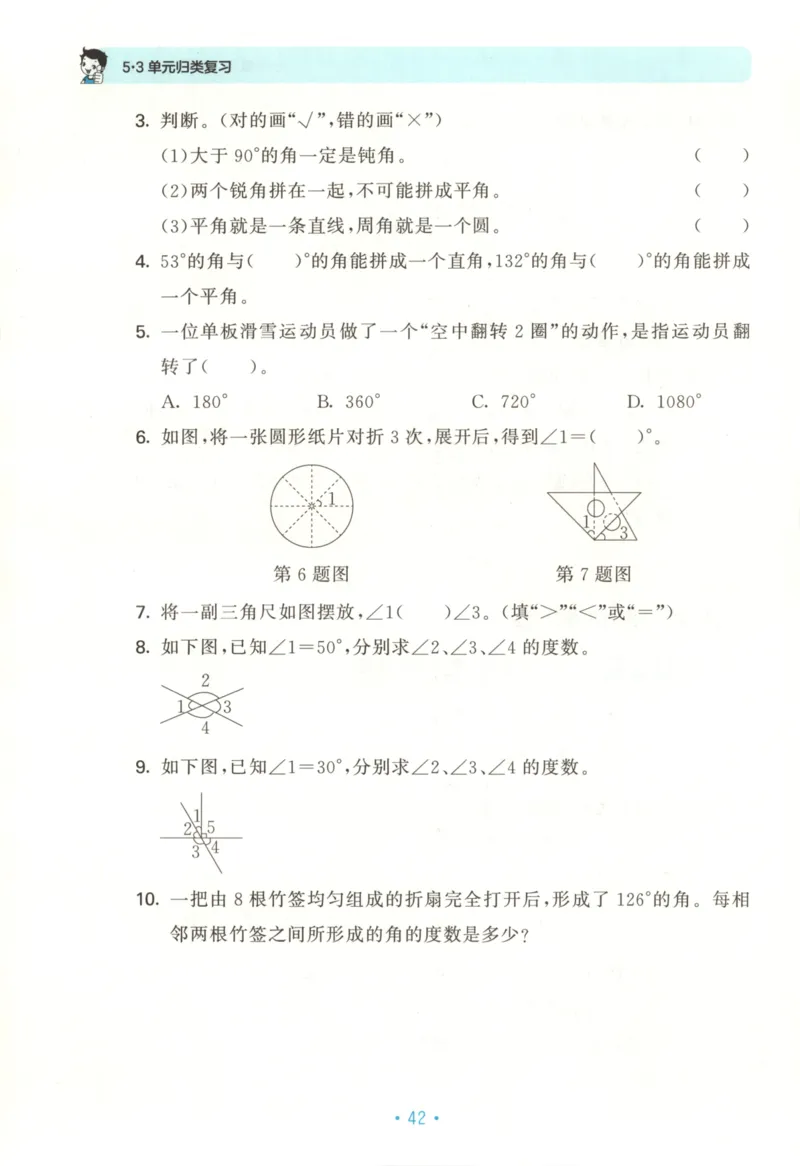 5·3 单元归类复习
3. 判断。(对的画“√”,错的画“×”)
(1)大于 90°的角一定是钝角。 (  )
(2)两个锐角拼在一起,不可能拼成平角。 (  )
(3)平角就是一条直线,周角就是一个圆。 (  )
4. 53°的角与(  )°的角能拼成一个直角,132°的角与(  )°的角能拼成
一个平角。
5. 一位单板滑雪运动员做了一个“空中翻转 2 圈”的动作,是指运动员翻
转了(  )。
A. 180° B. 360° C. 720° D. 1080°
6. 如图,将一张圆形纸片对折 3 次,展开后,得到∠1=(  )°。
1
1
3
第 6 题图 第 7 题图
7. 将一副三角尺如图摆放,∠1(  )∠3。(填“>”“<”或“=”)
8. 如下图,已知∠1=50°,分别求∠2、∠3、∠4 的度数。
2
1 3
4
9. 如下图,已知∠1=30°,分别求∠2、∠3、∠4 的度数。
1
2 5
3 4
10. 一把由 8 根竹签均匀组成的折扇完全打开后,形成了 126°的角。每相
邻两根竹签之间所形成的角的度数是多少?
· 42 ·